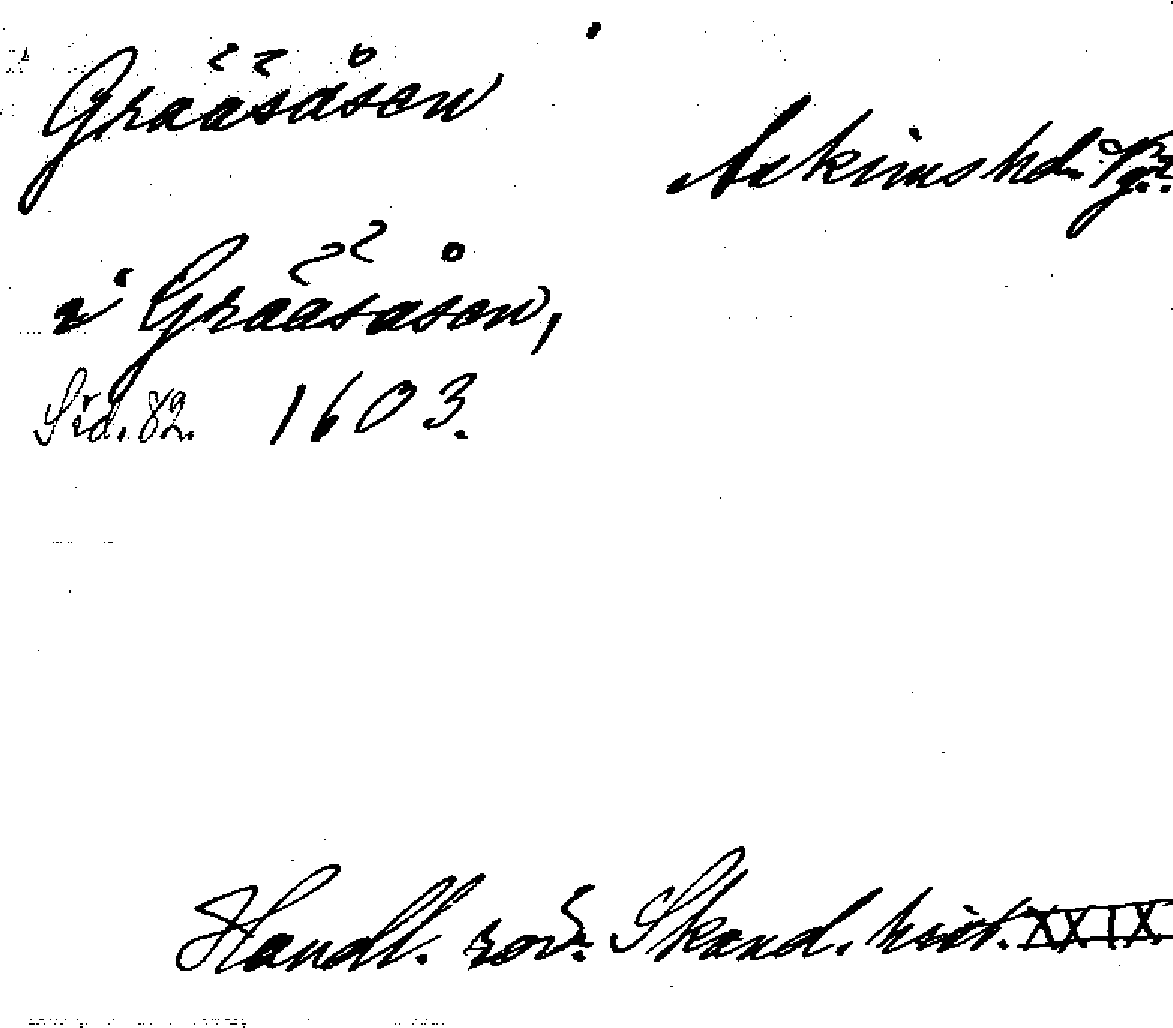 Gråå̊såsen
Askims hd. Vg.
i Gråå̊såsen,
Sid. 82. 1603.
Handl. rör. Skand. hist. XXIX.